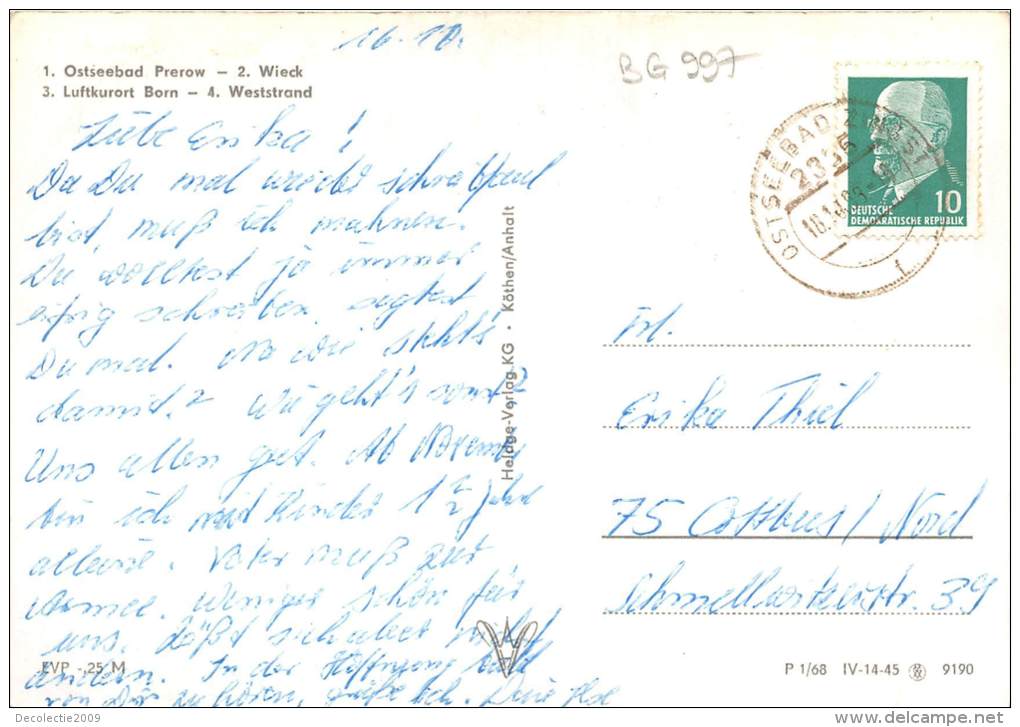 16.10.
BG 997
1. Ostseebad Prerow – 2. Wieck
3. Luftkurort Born – 4. Weststrand
OSTSEEBAD ZINGST
2355
10
DEUTSCHE
DEMOKRATISCHE REPUBLIK
Liebe Erika!
Da Du mal wieder schreibfaul
bist, muß ich mahnen.
Du wolltest ja immer
eifrig schreiben, sagtest
Du mal. Na wie steht's
damit? Wie geht's sonst?
Uns allen gut. Ab
bin ich mit Kinder 1 1/2 Jahr
alleine. Vater muß zur
Armee. Weniger schön für
uns. Läßt sich aber nicht
ändern. In der Hoffnung bald
von Dir zu hören, grüße ich. Deine
Heldge-Verlag KG • Köthen/Anhalt
Frl.
Erika Thiel
75 Cottbus/Nord
Schmellwitzerstr. 39
EVP -,25 M
P 1/68 IV-14-45 9190
Decolectie2009
www.delcampe.net